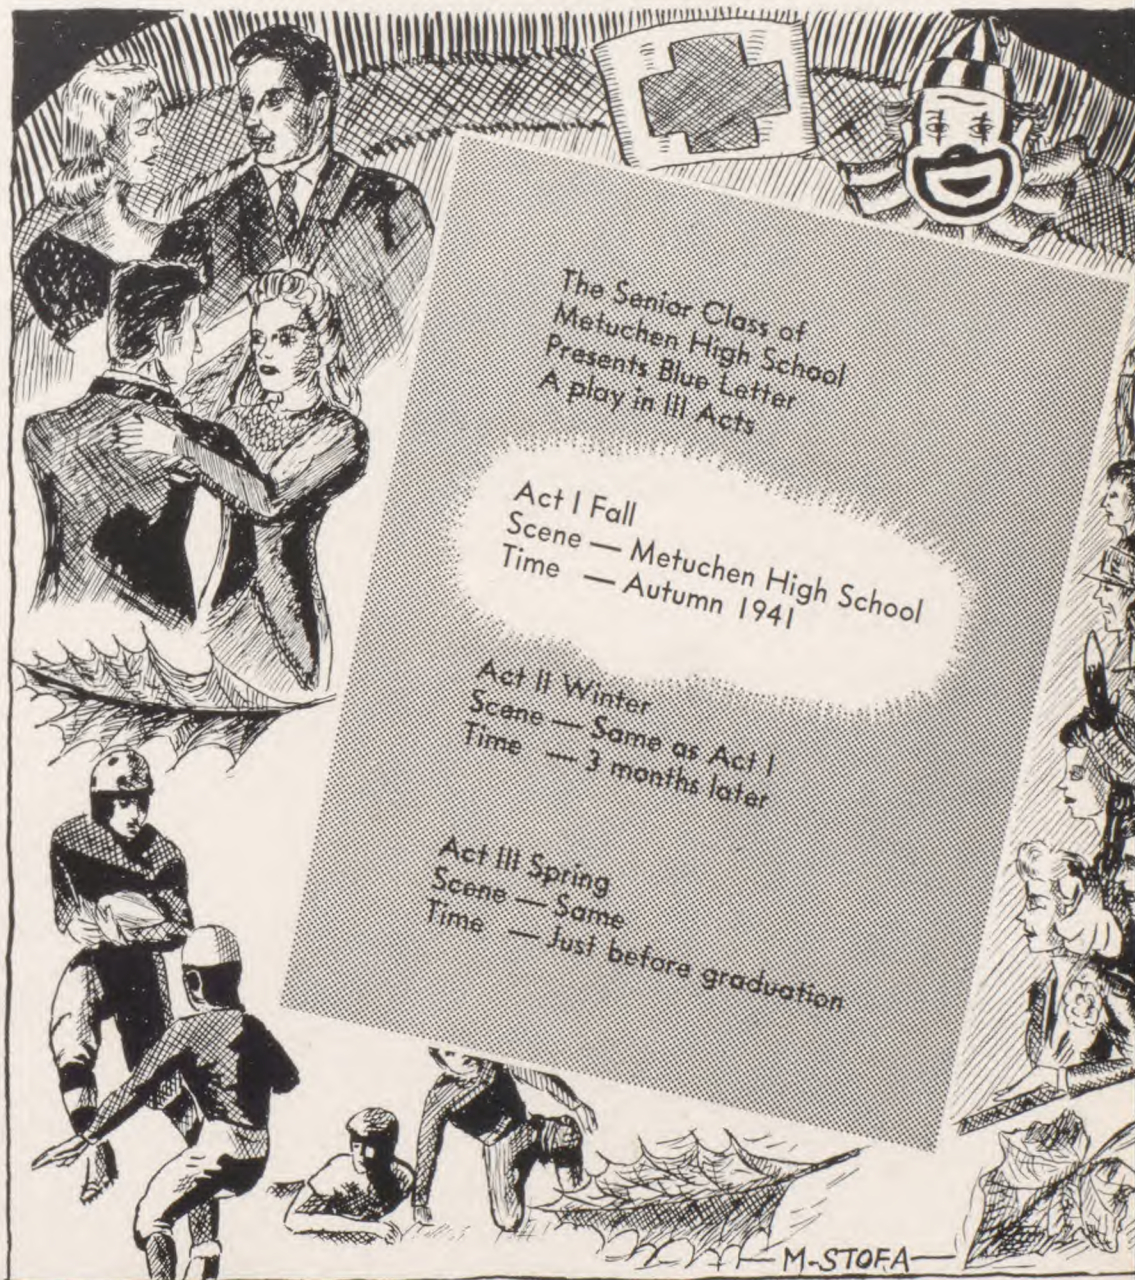 The Senior Class of
Metuchen High School
Presents Blue Letter
A play in III Acts
Act I Fall
Scene — Metuchen High School
Time — Autumn 1941
Act II Winter
Scene — Same as Act I
Time — 3 months later
Act III Spring
Scene — Same
Time — Just before graduation
M-STOFA